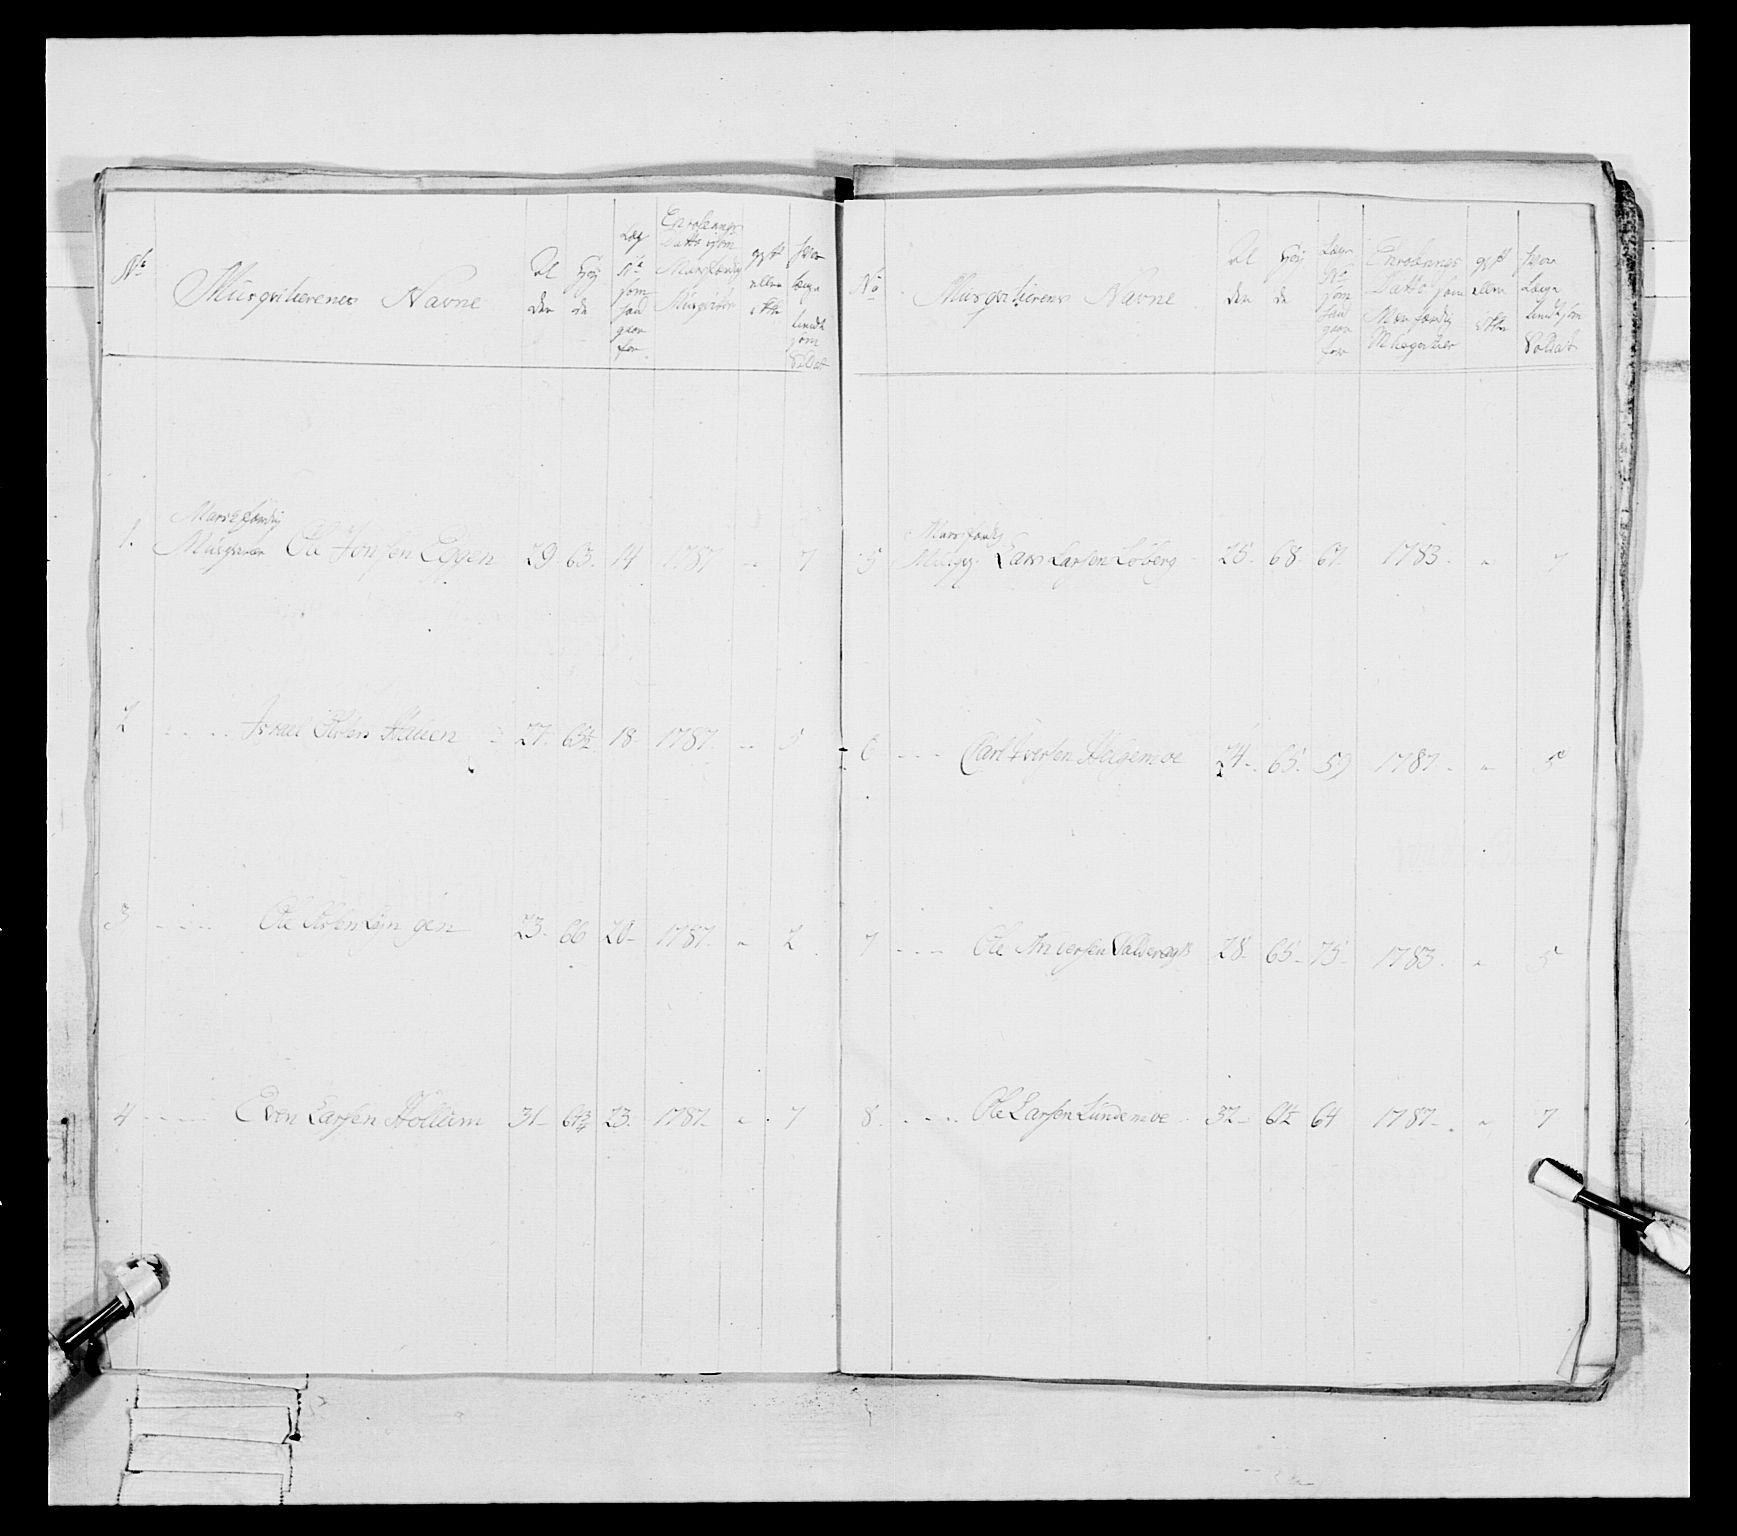 No Musqvetierenes Navne Al der Høj de Læg No som han staar for Enrolerings Datto som Marsfærdig Musqvetier gift eller ikke hvor længe tiendt som Soldat
1. Marsfærdig Musqvetier Ole Jonsen Eggen 29. 63. 14 1787 " 7
2 - - - Israel Olsen Hauen 27. 63½ 18. 1787. " 5
3 - - - Ole Olsen Løngen 23. 66 20 1787. " 2
4 - - - Even Larsen Hollum 31 64¾ 23. 1787. " 7
No Musqvetierenes Navne Al der Høj de Lægs No som han staar for Enrolerings Datto som Marsfærdig Musqvetier gift eller ikke hvor længe tiendt som Soldat
5 Marsfærdig Musqv. Lars Larsen Løberg 25. 68. 61. 1783. " 7
6 - - - Carl Iversen Helgemoe 24. 65. 59 1787. " 5
7 - - - Ole Iversen 28. 65 75 1783. " 5
8. - - - Ole Larsen Lundemoe 32 64 1787. " 7